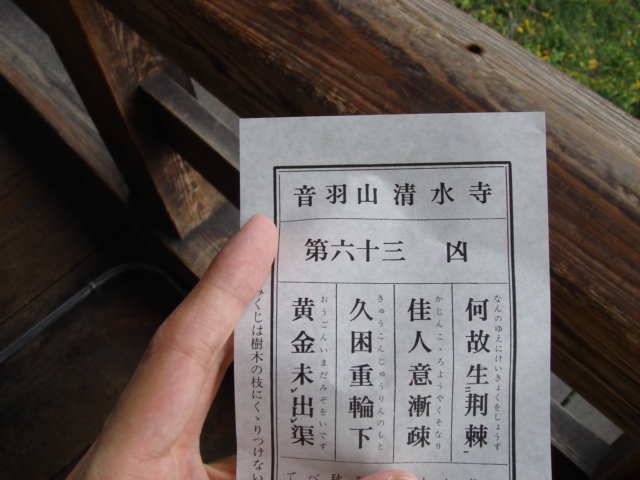 音羽山清水寺
第六十三 凶
何故生荆棘
なんのゆえにけいきょくをしょうず
佳人意漸疎
久困重輪下
きゅうこんじゅうりんのもと
黄金未出渠
おうごんいまだみぞをいでず
みくじは樹木の枝にくゝりつけない